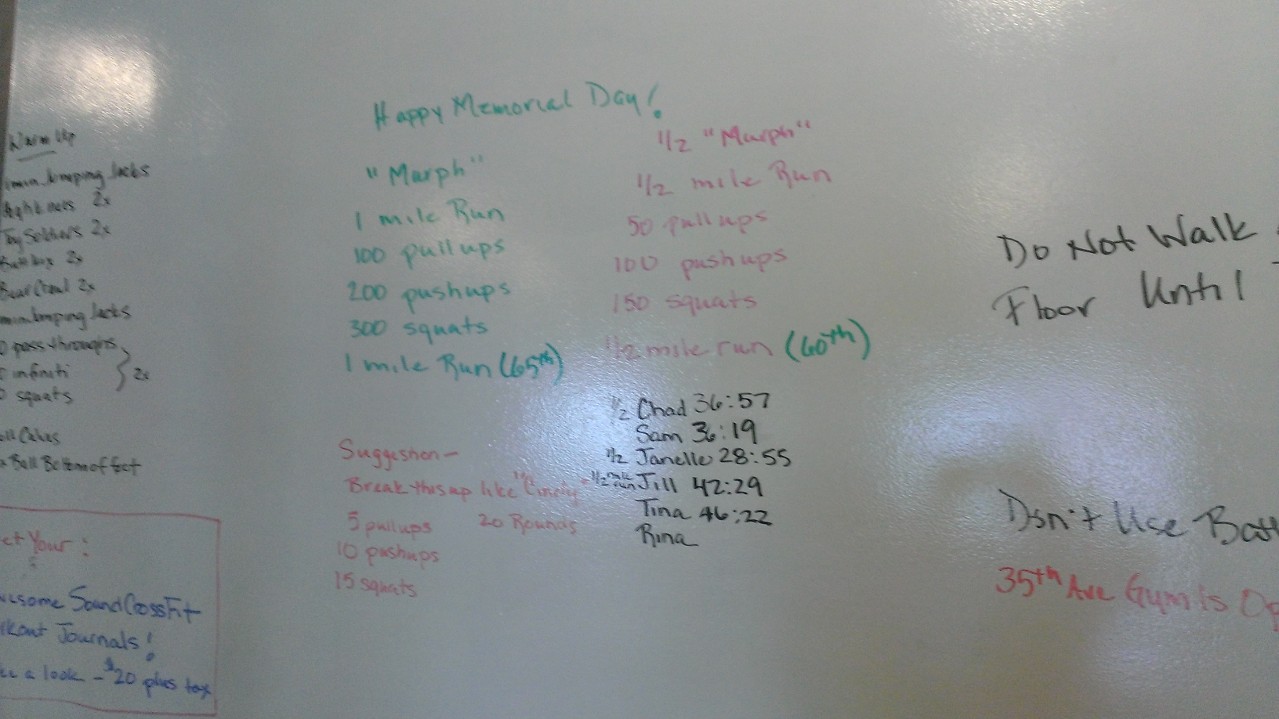 Warm Up
Jumping Jacks
2x
Toy Soldiers 2x
2x
Bear Crawl 2x
Jumping Jacks
pass-throughs
infiniti
2x
squats
Ball Bottom of
Happy Memorial Day!
"Murph"
1 mile Run
100 pullups
200 pushups
300 squats
1 mile Run (65th)
1/2 "Murph"
1/2 mile Run
50 pullups
100 pushups
150 squats
1/2 mile run (60th)
Suggestion -
Break this up like "Cindy"
5 pullups 20 Rounds
10 pushups
15 squats
1/2 Chad 36:57
Sam 36:19
1/2 Janelle 28:55
1/2 mile run Jill 42:29
Tina 46:22
Rina
Your:
SoundCrossFit
Journals!
a look - $20 plus tax
Do Not Walk
Floor Until
Don't Use
35th Ave Gym is